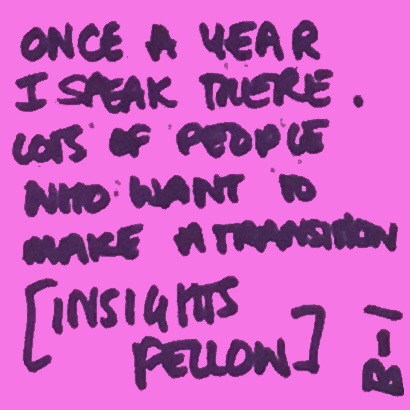 ONCE A YEAR
I SPEAK THERE.
LOTS OF PEOPLE
WHO WANT TO
MAKE A TRANSITION
[INSIGHTS
FELLOW]
B-1